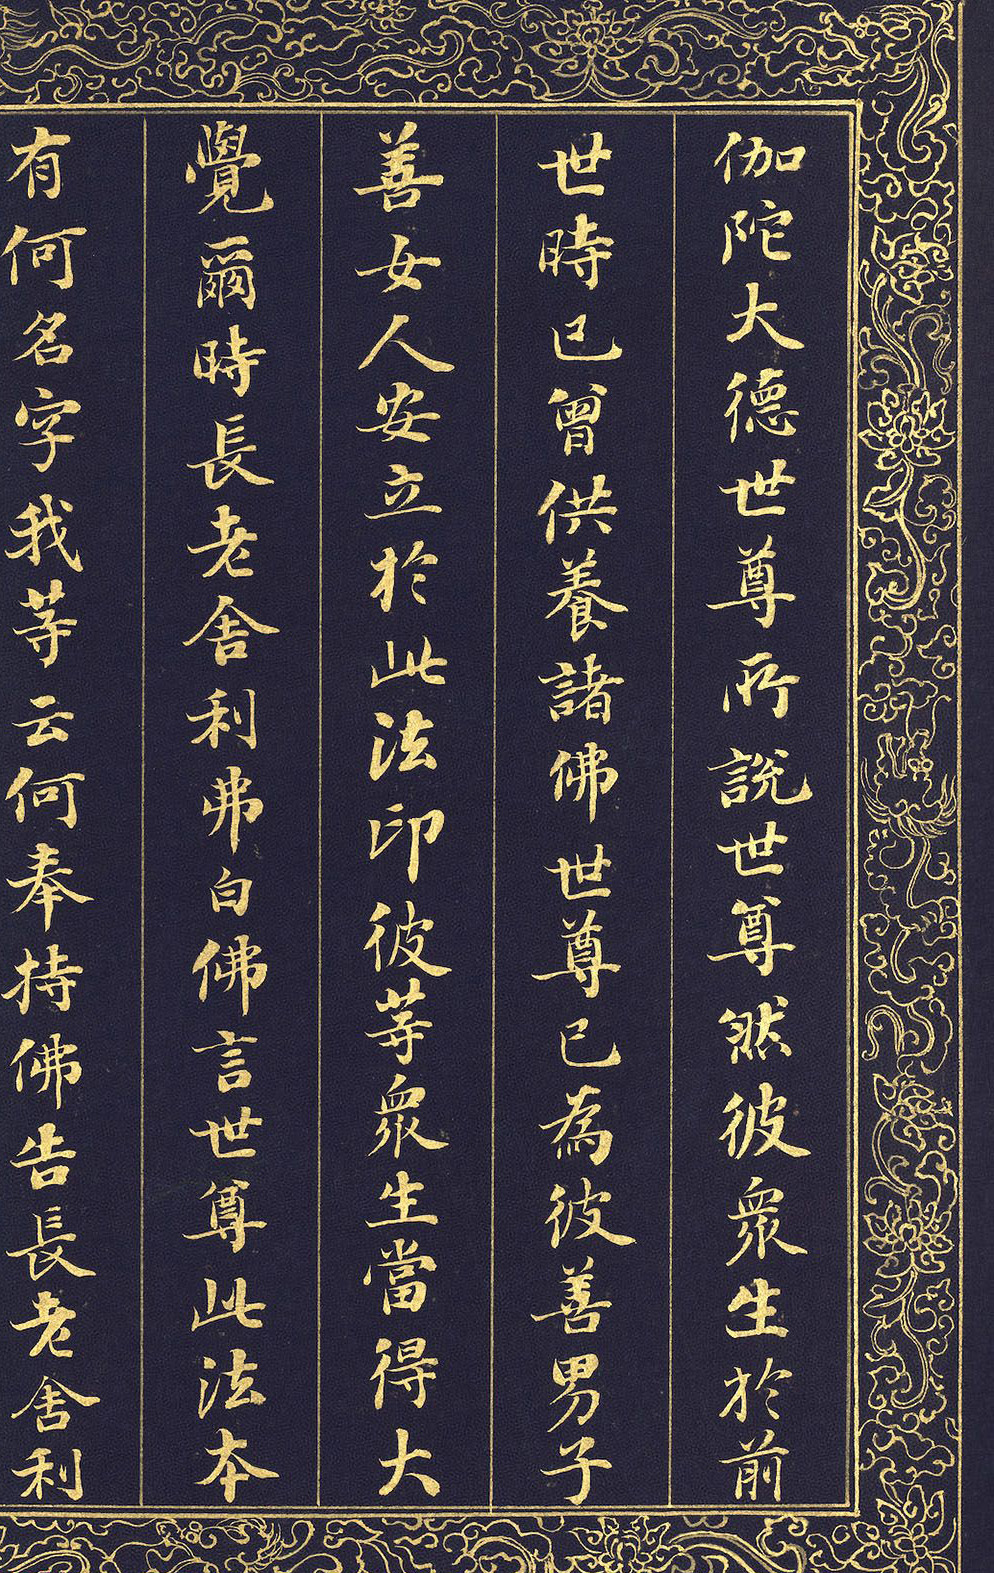 伽陀大德世尊所說世尊然彼眾生於前
世時已曾供養諸佛世尊已為彼善男子
善女人安立於此法印彼等眾生當得大
覺爾時長老舍利弗白佛言世尊此法本
有何名字我等云何奉持佛告長老舍利